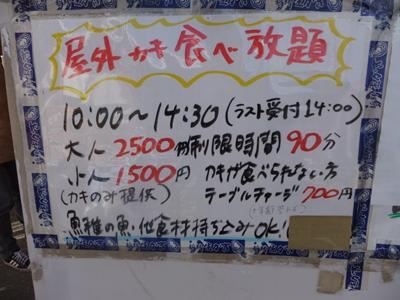 屋外 かき 食べ放題
10:00〜14:30(ラスト受付14:00)
大人 2500円 制限時間 90分
小人 1500円 カキが食べられない方
(カキのみ提供) テーブルチャージ 700円
魚種の魚・他食材持ち込みOK!